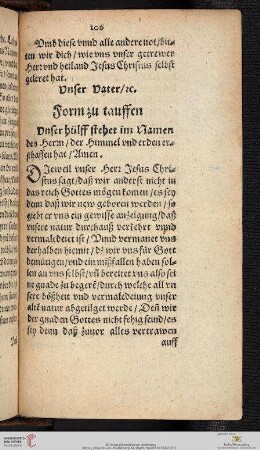 106
Vmb diese vnnd alle andere not/bit-
ten wir dich/wie vns vnser getrewer
Herr vnd heiland Jesus Christus selbst
geleret hat.
Vnser Vater/ꝛc.
Form zu tauffen
Vnser hülff stehet im Namen
des Herrn/der Himmel vnd erden er-
schaffen hat/Amen.
DJeweil vnser Herr Jesus Chri-
stus sagt/daß wir anderst nicht in
das reich Gottes mögen komen/es sey
denn daß wir new geboren werden/so
gibt er vns ein gewisse anzeigung/daß
vnsere natur durchauß verkehrt vnnd
vermaledeiet ist/Vnnd vermanet vns
derhalben hiemit/dz wir vns für Gott
demütigen/vnd ein mißfallen haben sol-
len an vns selbst/vñ bereitet vns also sei-
ne gnade zu begerẽ/durch welche all vn-
sere bößheit vnd vermaledeiung vnser
altẽ natur abgetilget werde/Deñ wir
der gnaden Gottes nicht fehig seind/es
sey denn daß zuuor alles vertrawen
auff